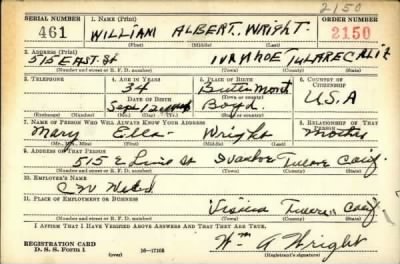 2150
SERIAL NUMBER 1. NAME (Print) ORDER NUMBER
461 WILLIAM ALBERT WRIGHT 2150
(First) (Middle) (Last)
2. ADDRESS (Print)
515 EAST St IVANHOE TULARE CALIF
(Number and street or R. F. D. number) (Town) (County) (State)
3. TELEPHONE 4. AGE IN YEARS 5. PLACE OF BIRTH 6. COUNTRY OF CITIZENSHIP
34 Butte Mont
(Town or county)
DATE OF BIRTH Boyd U.S.A
Sept
(Exchange) (Number) (Mo.) (Day) (Yr.) (State or country)
7. NAME OF PERSON WHO WILL ALWAYS KNOW YOUR ADDRESS 8. RELATIONSHIP OF THAT PERSON
Mary Ella Wright Mother
(Mr., Mrs., Miss) (First) (Middle) (Last)
9. ADDRESS OF THAT PERSON
515 E St Ivanhoe Tulare Calif
(Number and street or R. F. D. number) (Town) (County) (State)
10. EMPLOYER'S NAME
C W
11. PLACE OF EMPLOYMENT OR BUSINESS
Visalia Tulare Calif
(Number and street or R. F. D. number) (Town) (County) (State)
I AFFIRM THAT I HAVE VERIFIED ABOVE ANSWERS AND THAT THEY ARE TRUE.
REGISTRATION CARD
D. S. S. Form 1 (over) 16—17105 Wm A Wright
(Registrant's signature)